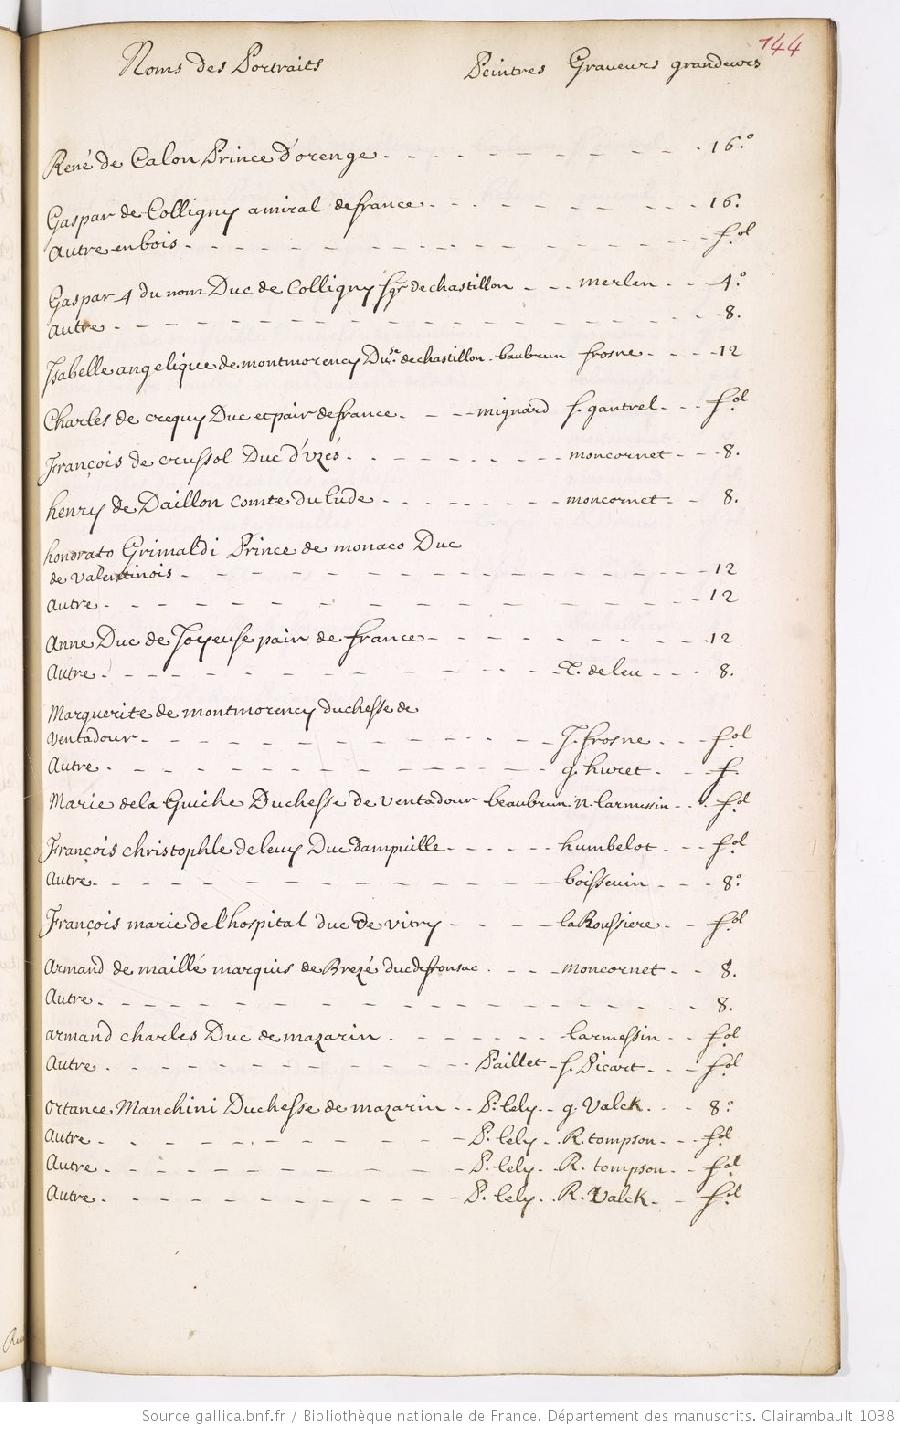 144
Noms des Portraits Peintres Graveurs grandeurs
René de Calon Prince d'orenge - - - - - - - - 16°
Gaspar de Colligny amiral de france - - - - - - 16.
Autre en bois - - - - - - - - - - fol
Gaspar 4 du nom Duc de Colligny sgr de chastillon - - - merlen - - - 4°
Autre - - - - - - - - - - 8.
Isabelle angelique de montmorency Dusse de chastillon - baubrun frosne - - - 12
Charles de crequy Duc et pair de france - - - mignard f. gantrel - - - fol
François de crussol Duc d'uzés - - - - - - moncornet - - 8.
henry de Daillon comte du lude - - - - - - moncornet - - 8.
honorato Grimaldi Prince de monaco Duc
de valentinois - - - - - - - - - - 12
Autre - - - - - - - - - - 12
Anne Duc de Joyeuse pair de france - - - - - - - 12
Autre - - - - - - - T. de leu - - - 8.
Marguerite de montmorency duchesse de
ventadour - - - - - - - J. frosne - - fol
Autre - - - - - - - g. huret - - f.
Marie de la Guiche Duchesse de ventadour beaubrun n. larmessin - - fol
François christophle de levy Duc dampuille - - - - - humbelot - - - fol
Autre - - - - - - - boissevin - - - 8°
François marie de l'hospital duc de vitry - - - la Roussiere - - fol
Armand de maillé marquis de Brezé duc de fronsac - - - moncornet - - 8.
Autre - - - - - - - - - - 8.
armand charles Duc de mazarin - - - - - - larmessin - - fol
Autre - - - - - - - Paillet - f. Picart - - - fol
ortance Manchini Duchesse de mazarin - - P. lely - - g. Valck - - - 8°
Autre - - - - - - - P. lely - - R. tompson - - - fol
Autre - - - - - - - P. lely - - R. tompson - - fol
Autre - - - - - - - P. lely - - R. Valck - - fol
Source gallica.bnf.fr / Bibliothèque nationale de France. Département des manuscrits. Clairambault 1038